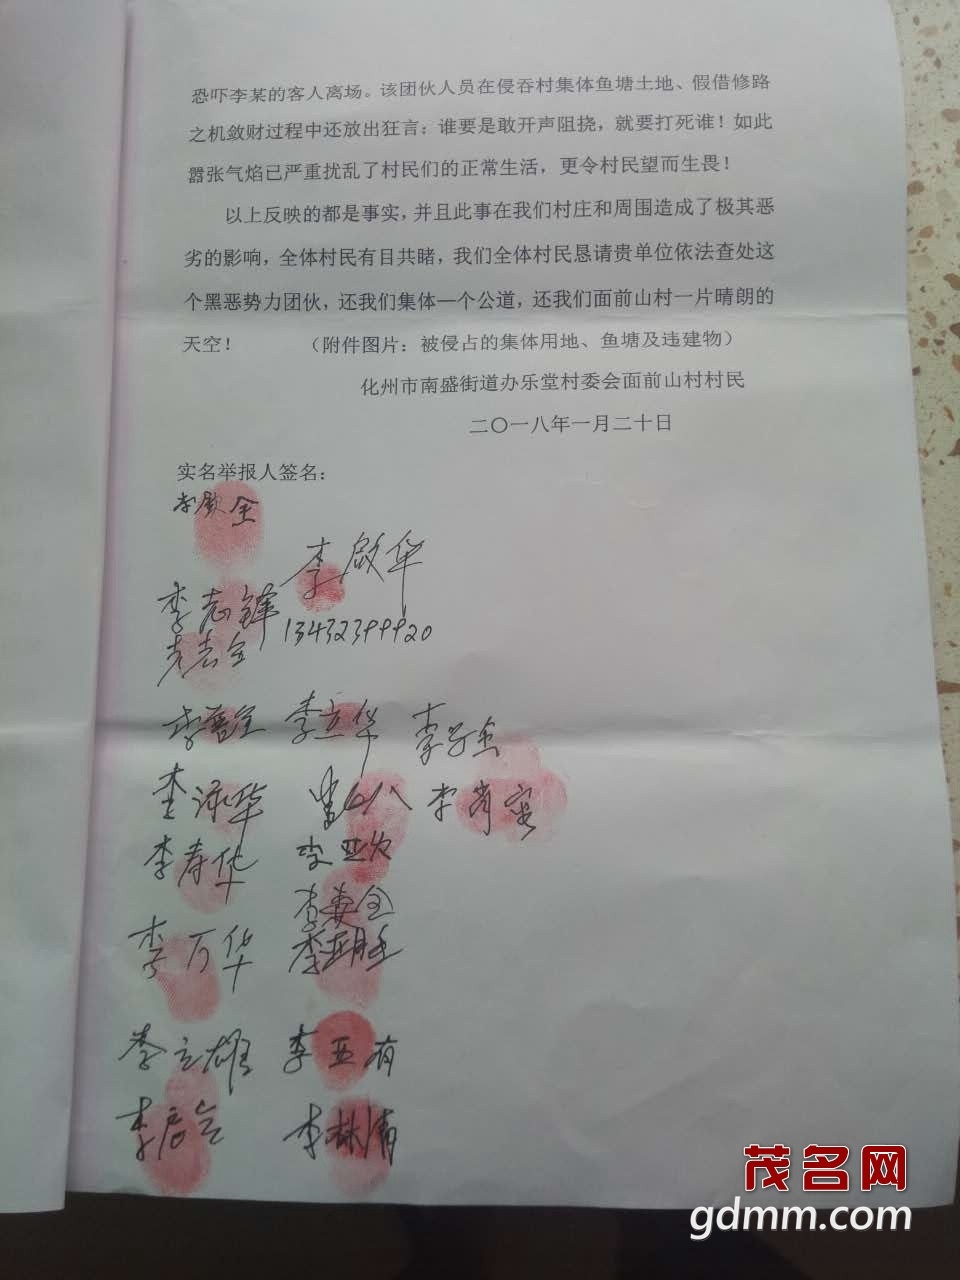 恐吓李某的客人离场。该团伙人员在侵吞村集体鱼塘土地、假借修路
之机敛财过程中还放出狂言：谁要是敢开声阻挠，就要打死谁！如此
嚣张气焰已严重扰乱了村民们的正常生活，更令村民望而生畏！
以上反映的都是事实，并且此事在我们村庄和周围造成了极其恶
劣的影响，全体村民有目共睹，我们全体村民恳请贵单位依法查处这
个黑恶势力团伙，还我们集体一个公道，还我们面前山村一片晴朗的
天空！ （附件图片：被侵占的集体用地、鱼塘及违建物）
化州市南盛街道办乐堂村委会面前山村村民
二〇一八年一月二十日
实名举报人签名：
李欧全
李啟华
李志锋
13432399920
李志全
李立华
李寿华
李亚次
李万华
李立雄 李亚有
李林清
茂名网
gdmm.com